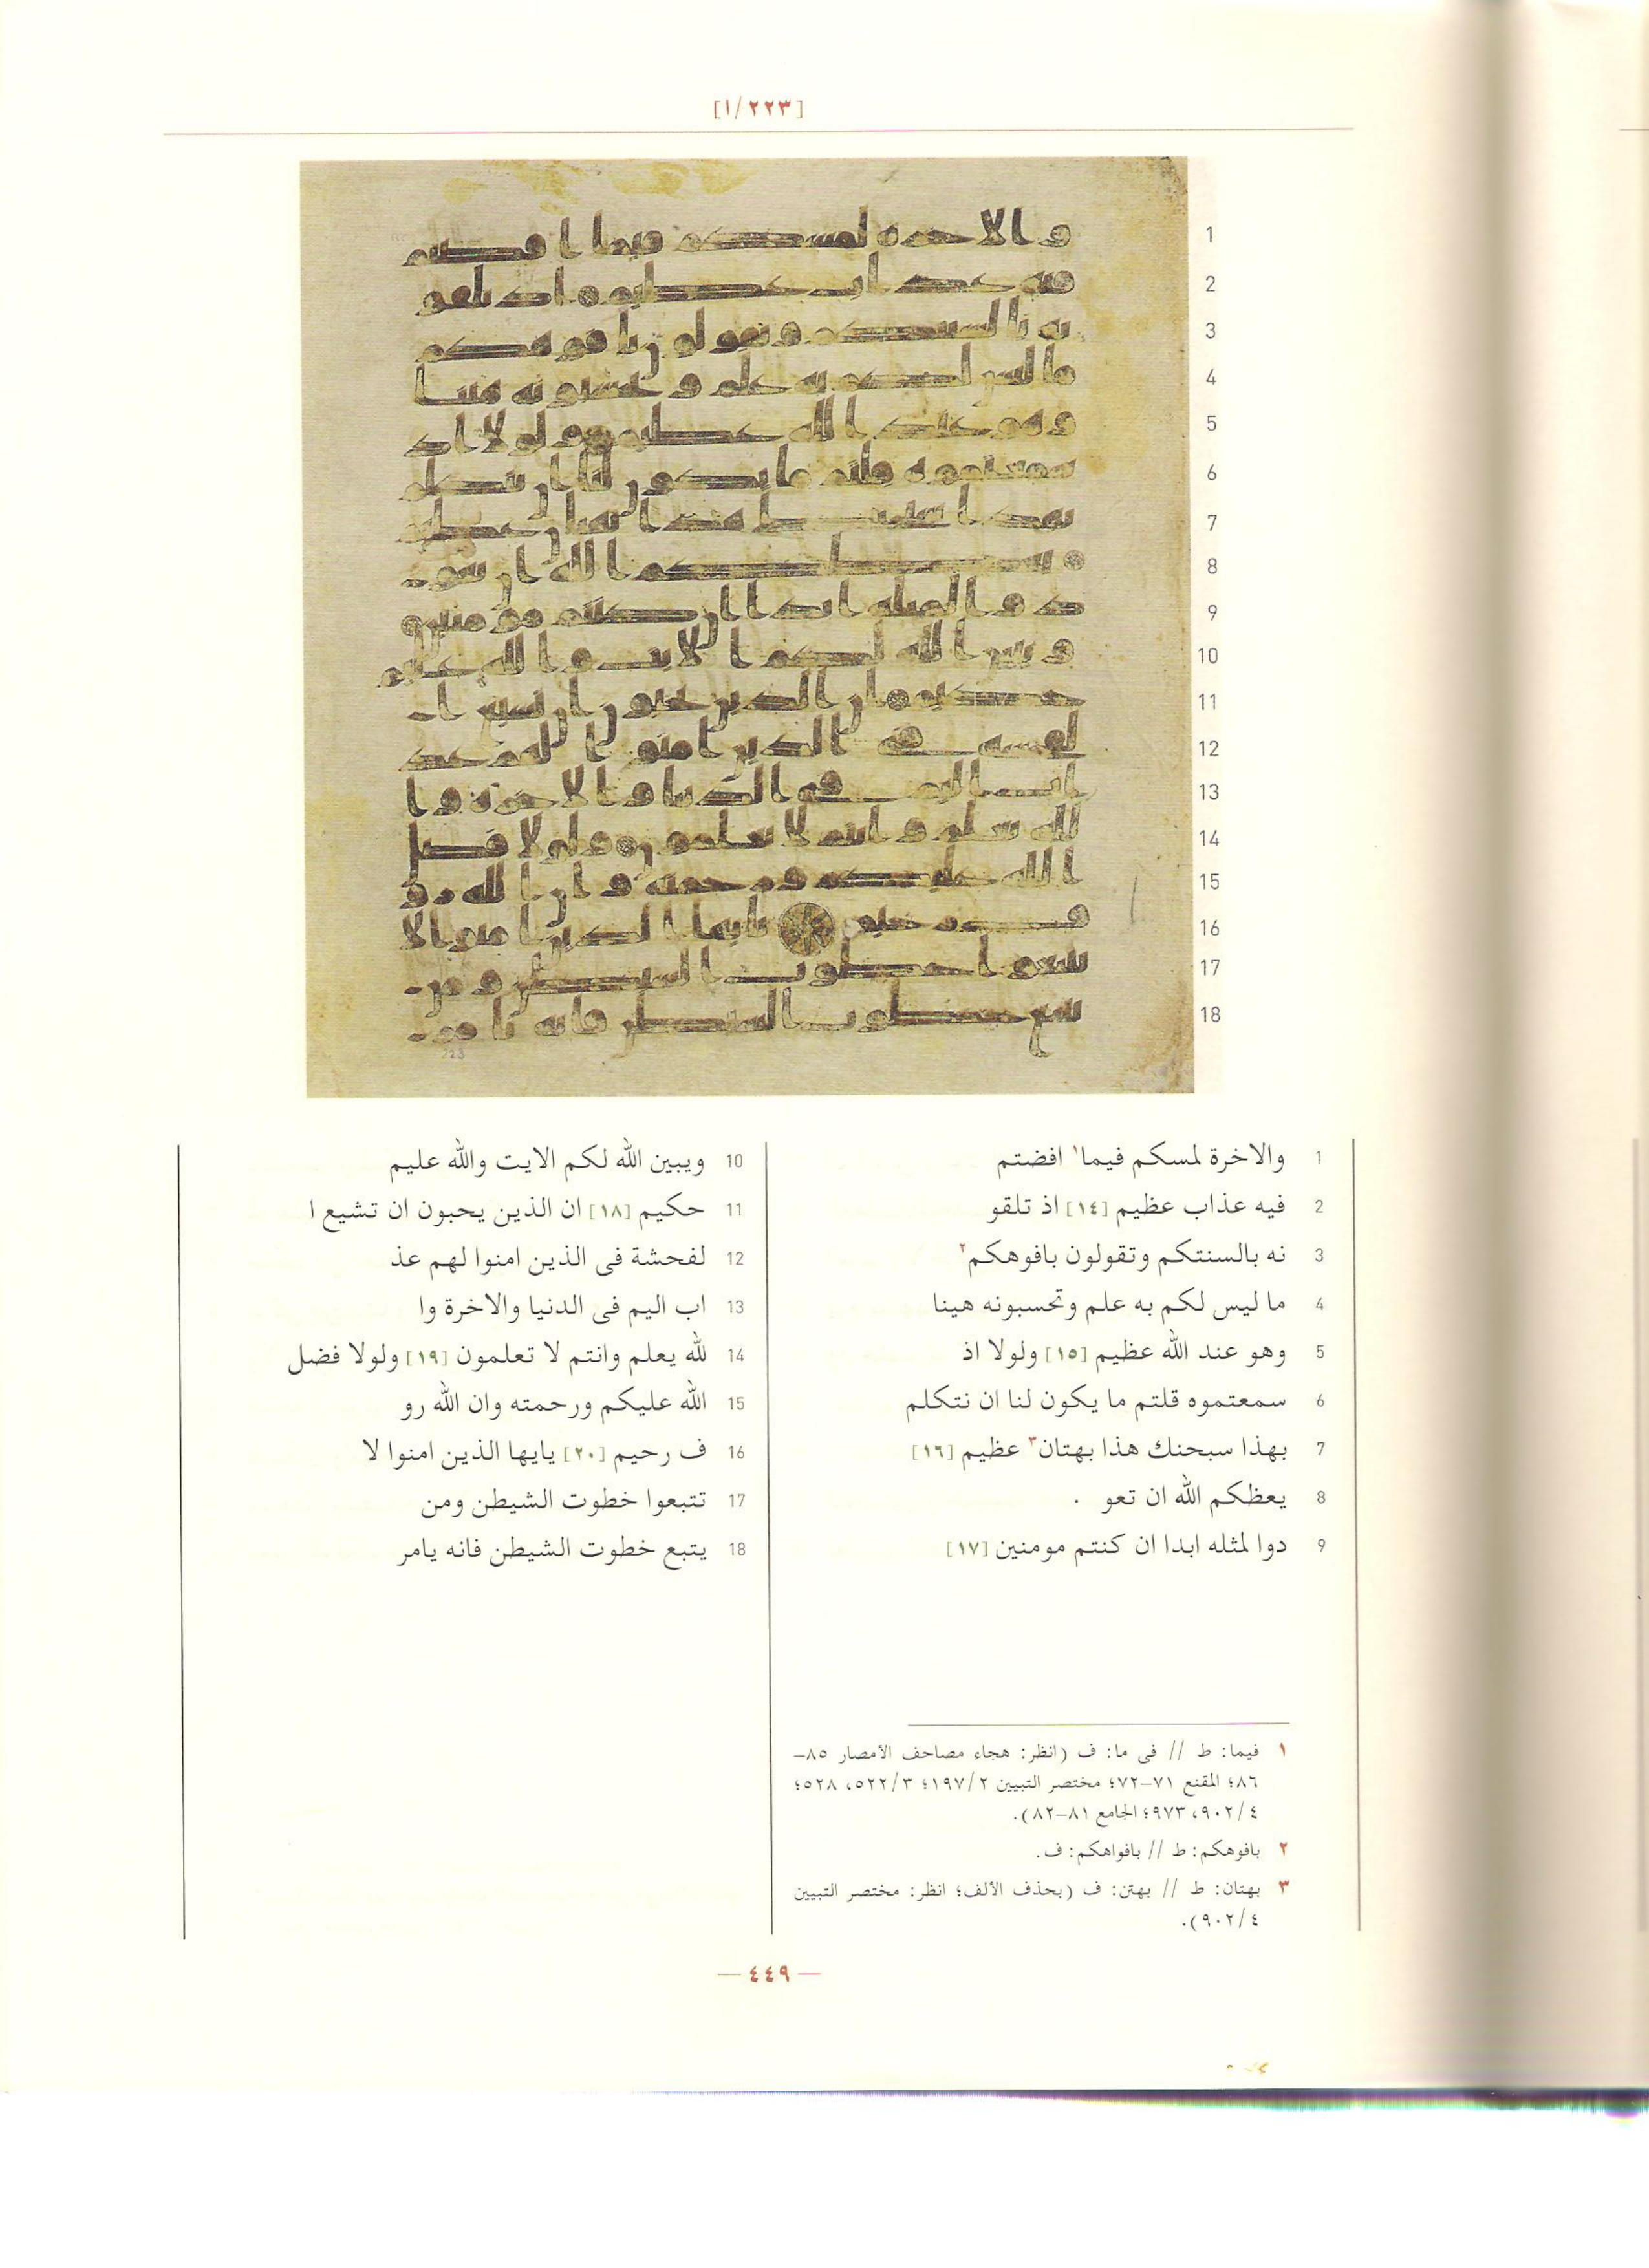 [١/٢٢٣]
1
2
3
4
5
6
7
8
9
10
11
12
13
14
15
16
17
18
1 والاخرة لمسكم فيما١ افضتم
2 فيه عذاب عظيم [١٤] اذ تلقو
3 نه بالسنتكم وتقولون بافوهكم٢
4 ما ليس لكم به علم وتحسبونه هينا
5 وهو عند الله عظيم [١٥] ولولا اذ
6 سمعتموه قلتم ما يكون لنا ان نتكلم
7 بهذا سبحنك هذا بهتان٣ عظيم [١٦]
8 يعظكم الله ان تعو .
9 دوا لمثله ابدا ان كنتم مومنين [١٧]
10 ويبين الله لكم الايت والله عليم
11 حكيم [١٨] ان الذين يحبون ان تشيع ا
12 لفحشة فى الذين امنوا لهم عذ
13 اب اليم فى الدنيا والاخرة وا
14 لله يعلم وانتم لا تعلمون [١٩] ولولا فضل
15 الله عليكم ورحمته وان الله رو
16 ف رحيم [٢٠] يايها الذين امنوا لا
17 تتبعوا خطوت الشيطن ومن
18 يتبع خطوت الشيطن فانه يامر
١ فيما: ط // فى ما: ف (انظر: هجاء مصاحف الأمصار ٨٥–
٨٦؛ المقنع ٧١–٧٢؛ مختصر التبيين ١٩٧/٢؛ ٥٢٢/٣، ٥٢٨؛
٩٠٢/٤، ٩٧٣؛ الجامع ٨١–٨٢).
٢ بافوهكم: ط // بافواهكم: ف.
٣ بهتان: ط // بهتن: ف (بحذف الألف؛ انظر: مختصر التبيين
٩٠٢/٤).
— ٤٤٩ —